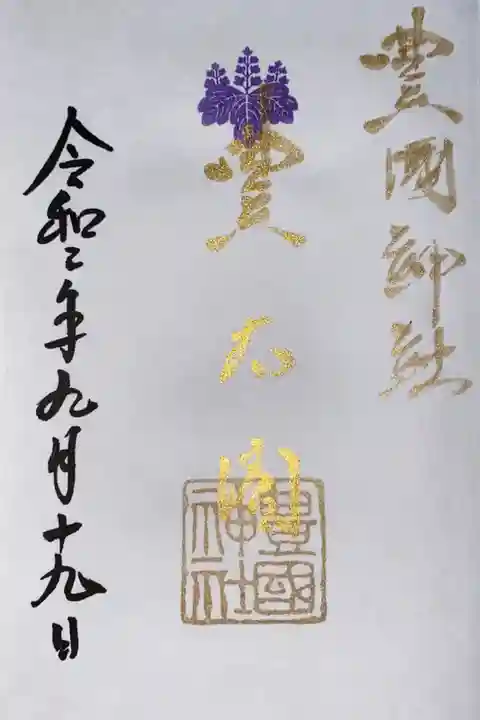 豐國神社
豐太閤
豊國
神社
令和二年九月十九日